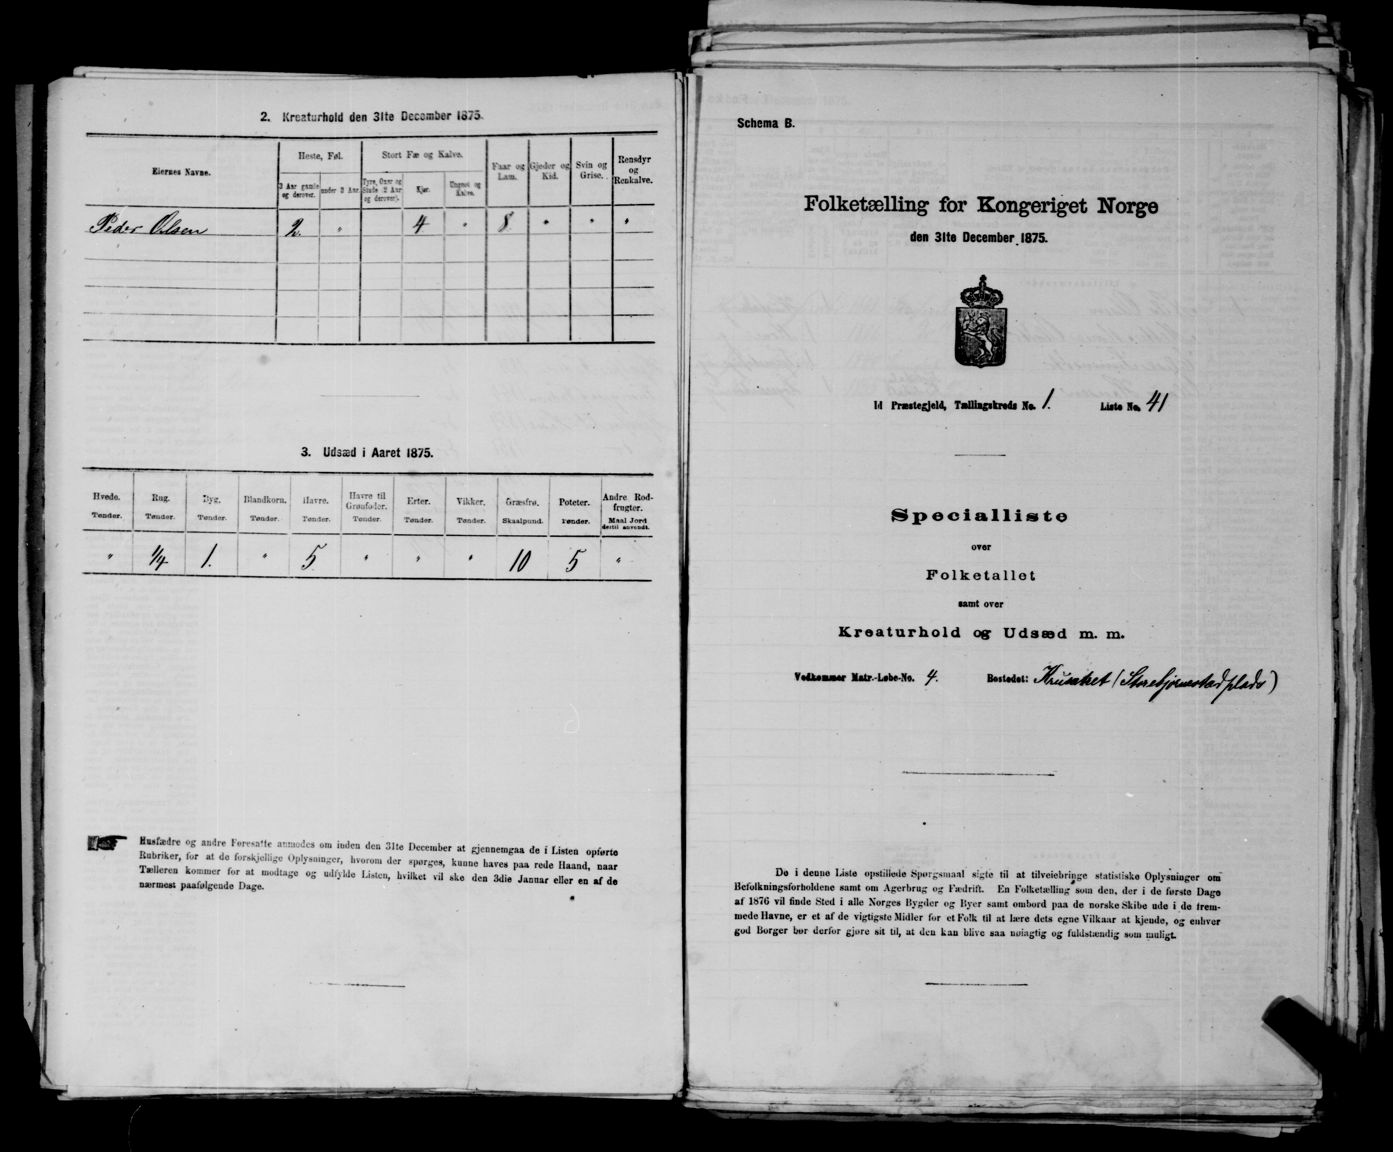 2. Kreaturhold den 31te December 1875.
Eiernes Navne.
Heste, Føl.
Stort Fæ og Kalve.
Faar og Lam.
Gjeder og Kid.
Svin og Grise.
Rensdyr og Renkalve.
3 Aar gamle og derover.
under 3 Aar.
Tyre, Oxer og Stude (2 Aar og derover).
Kjør.
Ungnøt og Kalve.
Peder Olsen 2. " 4 " 8 " " "
3. Udsæd i Aaret 1875.
Hvede. Rug. Byg. Blandkorn. Havre. Havre til Grønfoder. Erter. Vikker. Græsfrø. Poteter. Andre Rodfrugter.
Tønder. Tønder. Tønder. Tønder. Tønder. Tønder. Tønder. Tønder. Skaalpund. Tønder. Maal Jord dertil anvendt.
" 1/4 1. " 5 " " " 10 5 "
Husfædre og andre Foresatte anmodes om inden den 31te December at gjennemgaa de i Listen opførte
Rubriker, for at de forskjellige Oplysninger, hvorom der spørges, kunne haves paa rede Haand, naar
Tælleren kommer for at modtage og udfylde Listen, hvilket vil ske den 3die Januar eller en af de
nærmest paafølgende Dage.
Schema B.
Folketælling for Kongeriget Norge
den 31te December 1875.
Id Præstegjeld, Tællingskreds No. 1. Liste No. 41
Specialliste
over
Folketallet
samt over
Kreaturhold og Udsæd m. m.
Vedkommer Matr.-Løbe-No. 4. Bostedet: (Storebjørnestad plads)
De i denne Liste opstillede Spørgsmaal sigte til at tilveiebringe statistiske Oplysninger om
Befolkningsforholdene samt om Agerbrug og Fædrift. En Folketælling som den, der i de første Dage
af 1876 vil finde Sted i alle Norges Bygder og Byer samt ombord paa de norske Skibe ude i de frem-
mede Havne, er et af de vigtigste Midler for et Folk til at lære dets egne Vilkaar at kjende, og enhver
god Borger bør derfor gjøre sit til, at den kan blive saa nøiagtig og fuldstændig som muligt.